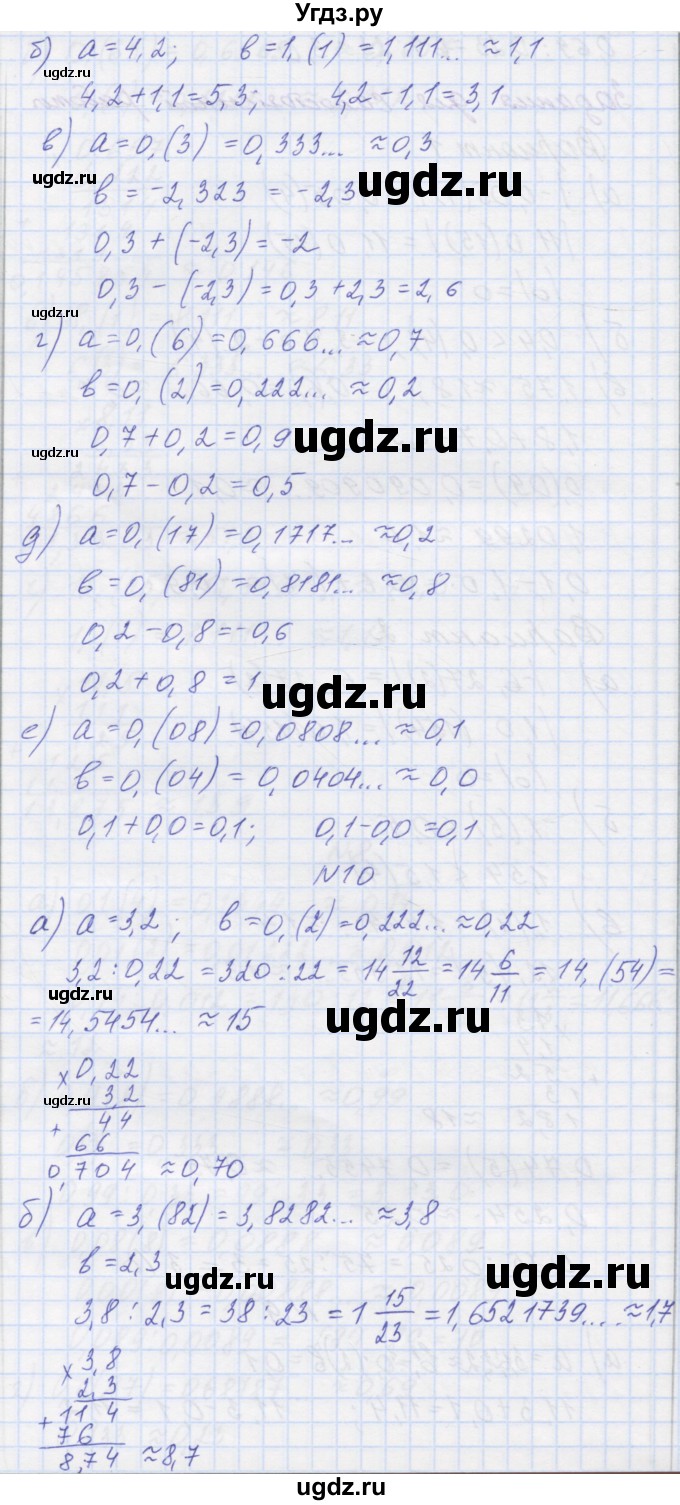 Угдз.ру
б) a = 4,2; в = 1,(1) = 1,111... ≈ 1,1
ugdz.ru
4,2 + 1,1 = 5,3; 4,2 - 1,1 = 3,1
в) a = 0,(3) = 0,333... ≈ 0,3
ugdz.ru
в = -2,323 = -2,3
ugdz.ru
0,3 + (-2,3) = -2
0,3 - (-2,3) = 0,3 + 2,3 = 2,6
г) a = 0,(6) = 0,666... ≈ 0,7
в = 0,(2) = 0,222... ≈ 0,2
ugdz.ru
0,7 + 0,2 = 0,9
ugdz.ru
0,7 - 0,2 = 0,5
д) a = 0,(17) = 0,1717... ≈ 0,2
в = 0,(81) = 0,8181... ≈ 0,8
0,2 - 0,8 = -0,6
0,2 + 0,8 = 1
ugdz.ru
ugdz.ru
е) a = 0,(08) = 0,0808... ≈ 0,1
в = 0,(04) = 0,0404... ≈ 0,0
0,1 + 0,0 = 0,1; 0,1 - 0,0 = 0,1
N10
а) a = 3,2; в = 0,(2) = 0,222... ≈ 0,22
3,2 : 0,22 = 320 : 22 = 14 12/22 = 14 6/11 = 14,(54) =
ugdz.ru
= 14,5454... ≈ 15
ugdz.ru
× 0,22
3,2
ugdz.ru
+ 44
66
0,704 ≈ 0,70
б) a = 3,(82) = 3,8282... ≈ 3,8
в = 2,3
ugdz.ru
ugdz.ru
3,8 : 2,3 = 38 : 23 = 1 15/23 = 1,6521739.... ≈ 1,7
× 3,8
2,3
+ 11 4
76
8,74 ≈ 8,7
ugdz.ru
ugdz.ru